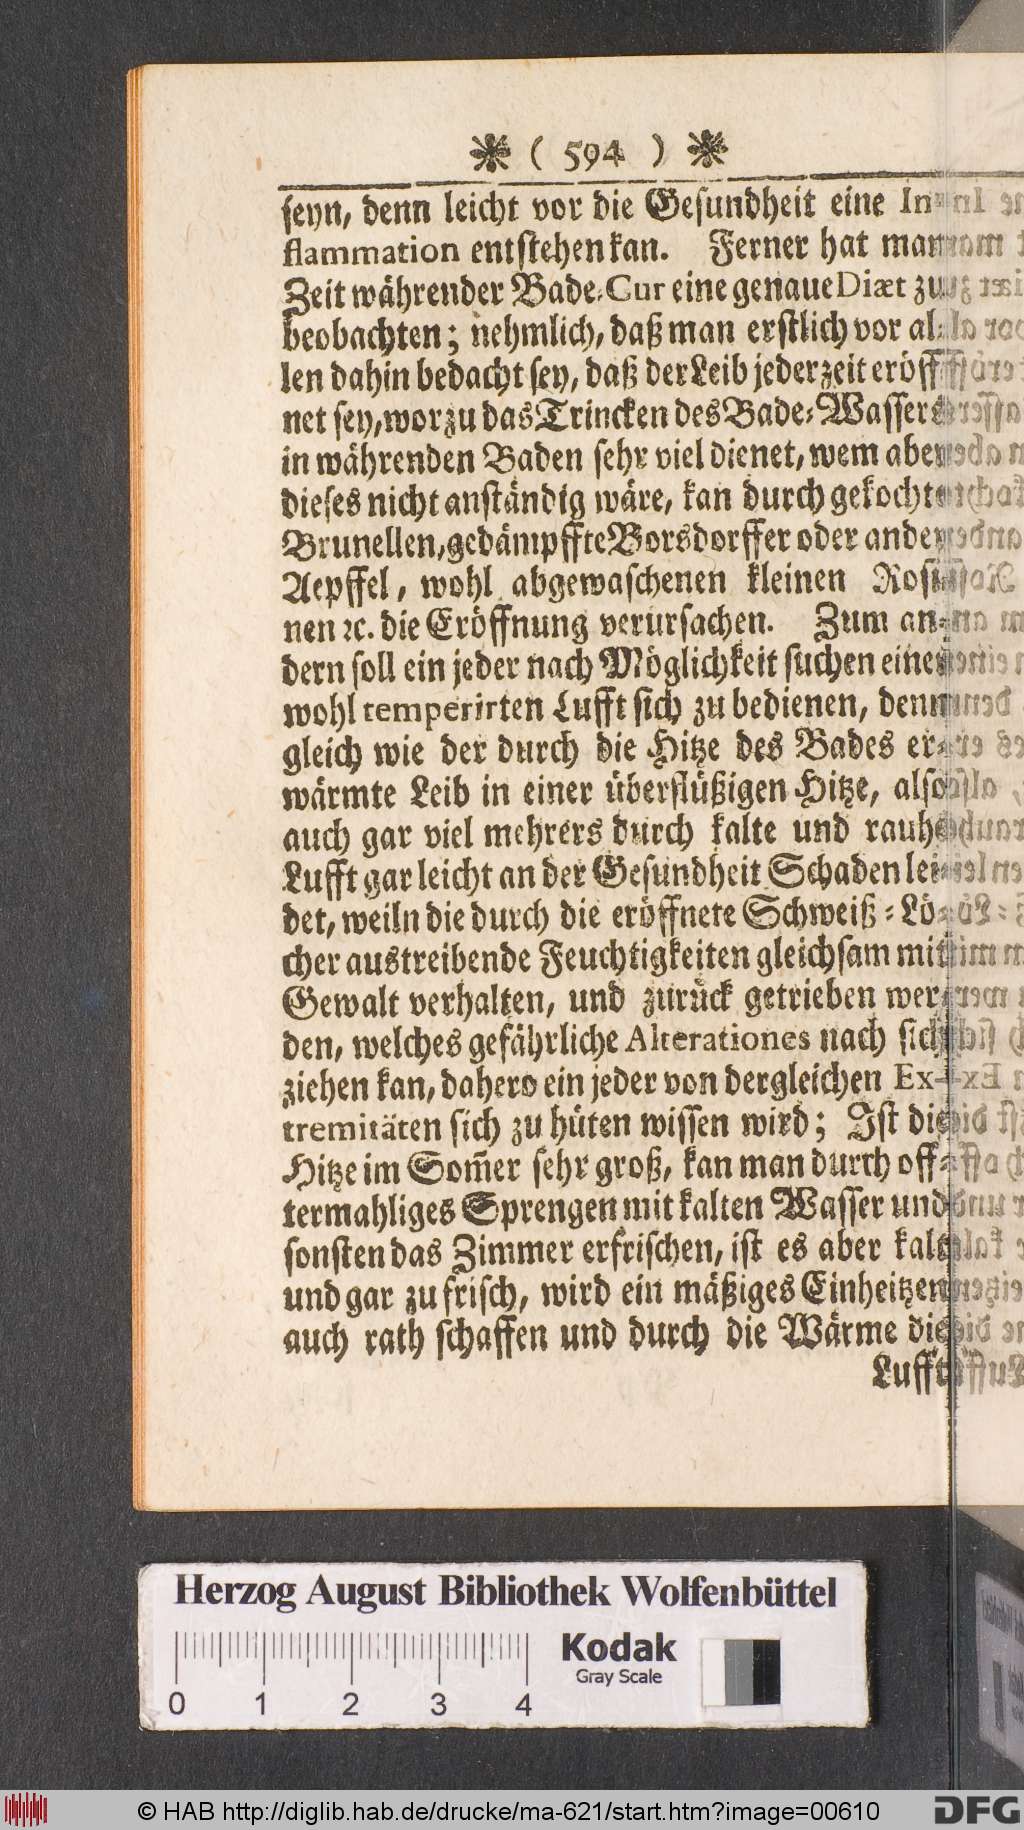 * ( 594 ) *
seyn, denn leicht vor die Gesundheit eine In-
flammation entstehen kan. Ferner hat man
Zeit währender Bade-Cur eine genaue Diæt zu
beobachten; nehmlich, daß man erstlich vor al-
len dahin bedacht sey, daß der Leib jederzeit eröff-
net sey, worzu das Trincken des Bade-Wassers
in währenden Baden sehr viel dienet, wem aber
dieses nicht anständig wäre, kan durch gekochte
Brunellen, gedämpffte Borsdorffer oder andere
Aepffel, wohl abgewaschenen kleinen Rosi-
nen ꝛc. die Eröffnung verursachen. Zum an-
dern soll ein jeder nach Möglichkeit suchen einer
wohl temperirten Lufft sich zu bedienen, denn
gleich wie der durch die Hitze des Bades er-
wärmte Leib in einer überflüßigen Hitze, also
auch gar viel mehrers durch kalte und rauhe
Lufft gar leicht an der Gesundheit Schaden lei-
det, weiln die durch die eröffnete Schweiß-Lö-
cher austreibende Feuchtigkeiten gleichsam mit
Gewalt verhalten, und zurück getrieben wer-
den, welches gefährliche Alterationes nach sich
ziehen kan, dahero ein jeder von dergleichen Ex-
tremitäten sich zu hüten wissen wird; Ist die
Hitze im Som̃er sehr groß, kan man durch off-
termahliges Sprengen mit kalten Wasser und
sonsten das Zimmer erfrischen, ist es aber kalt
und gar zu frisch, wird ein mäßiges Einheitzen
auch rath schaffen und durch die Wärme die
Lufft
Herzog August Bibliothek Wolfenbüttel
Kodak
Gray Scale
0 1 2 3 4
© HAB http://diglib.hab.de/drucke/ma-621/start.htm?image=00610
DFG